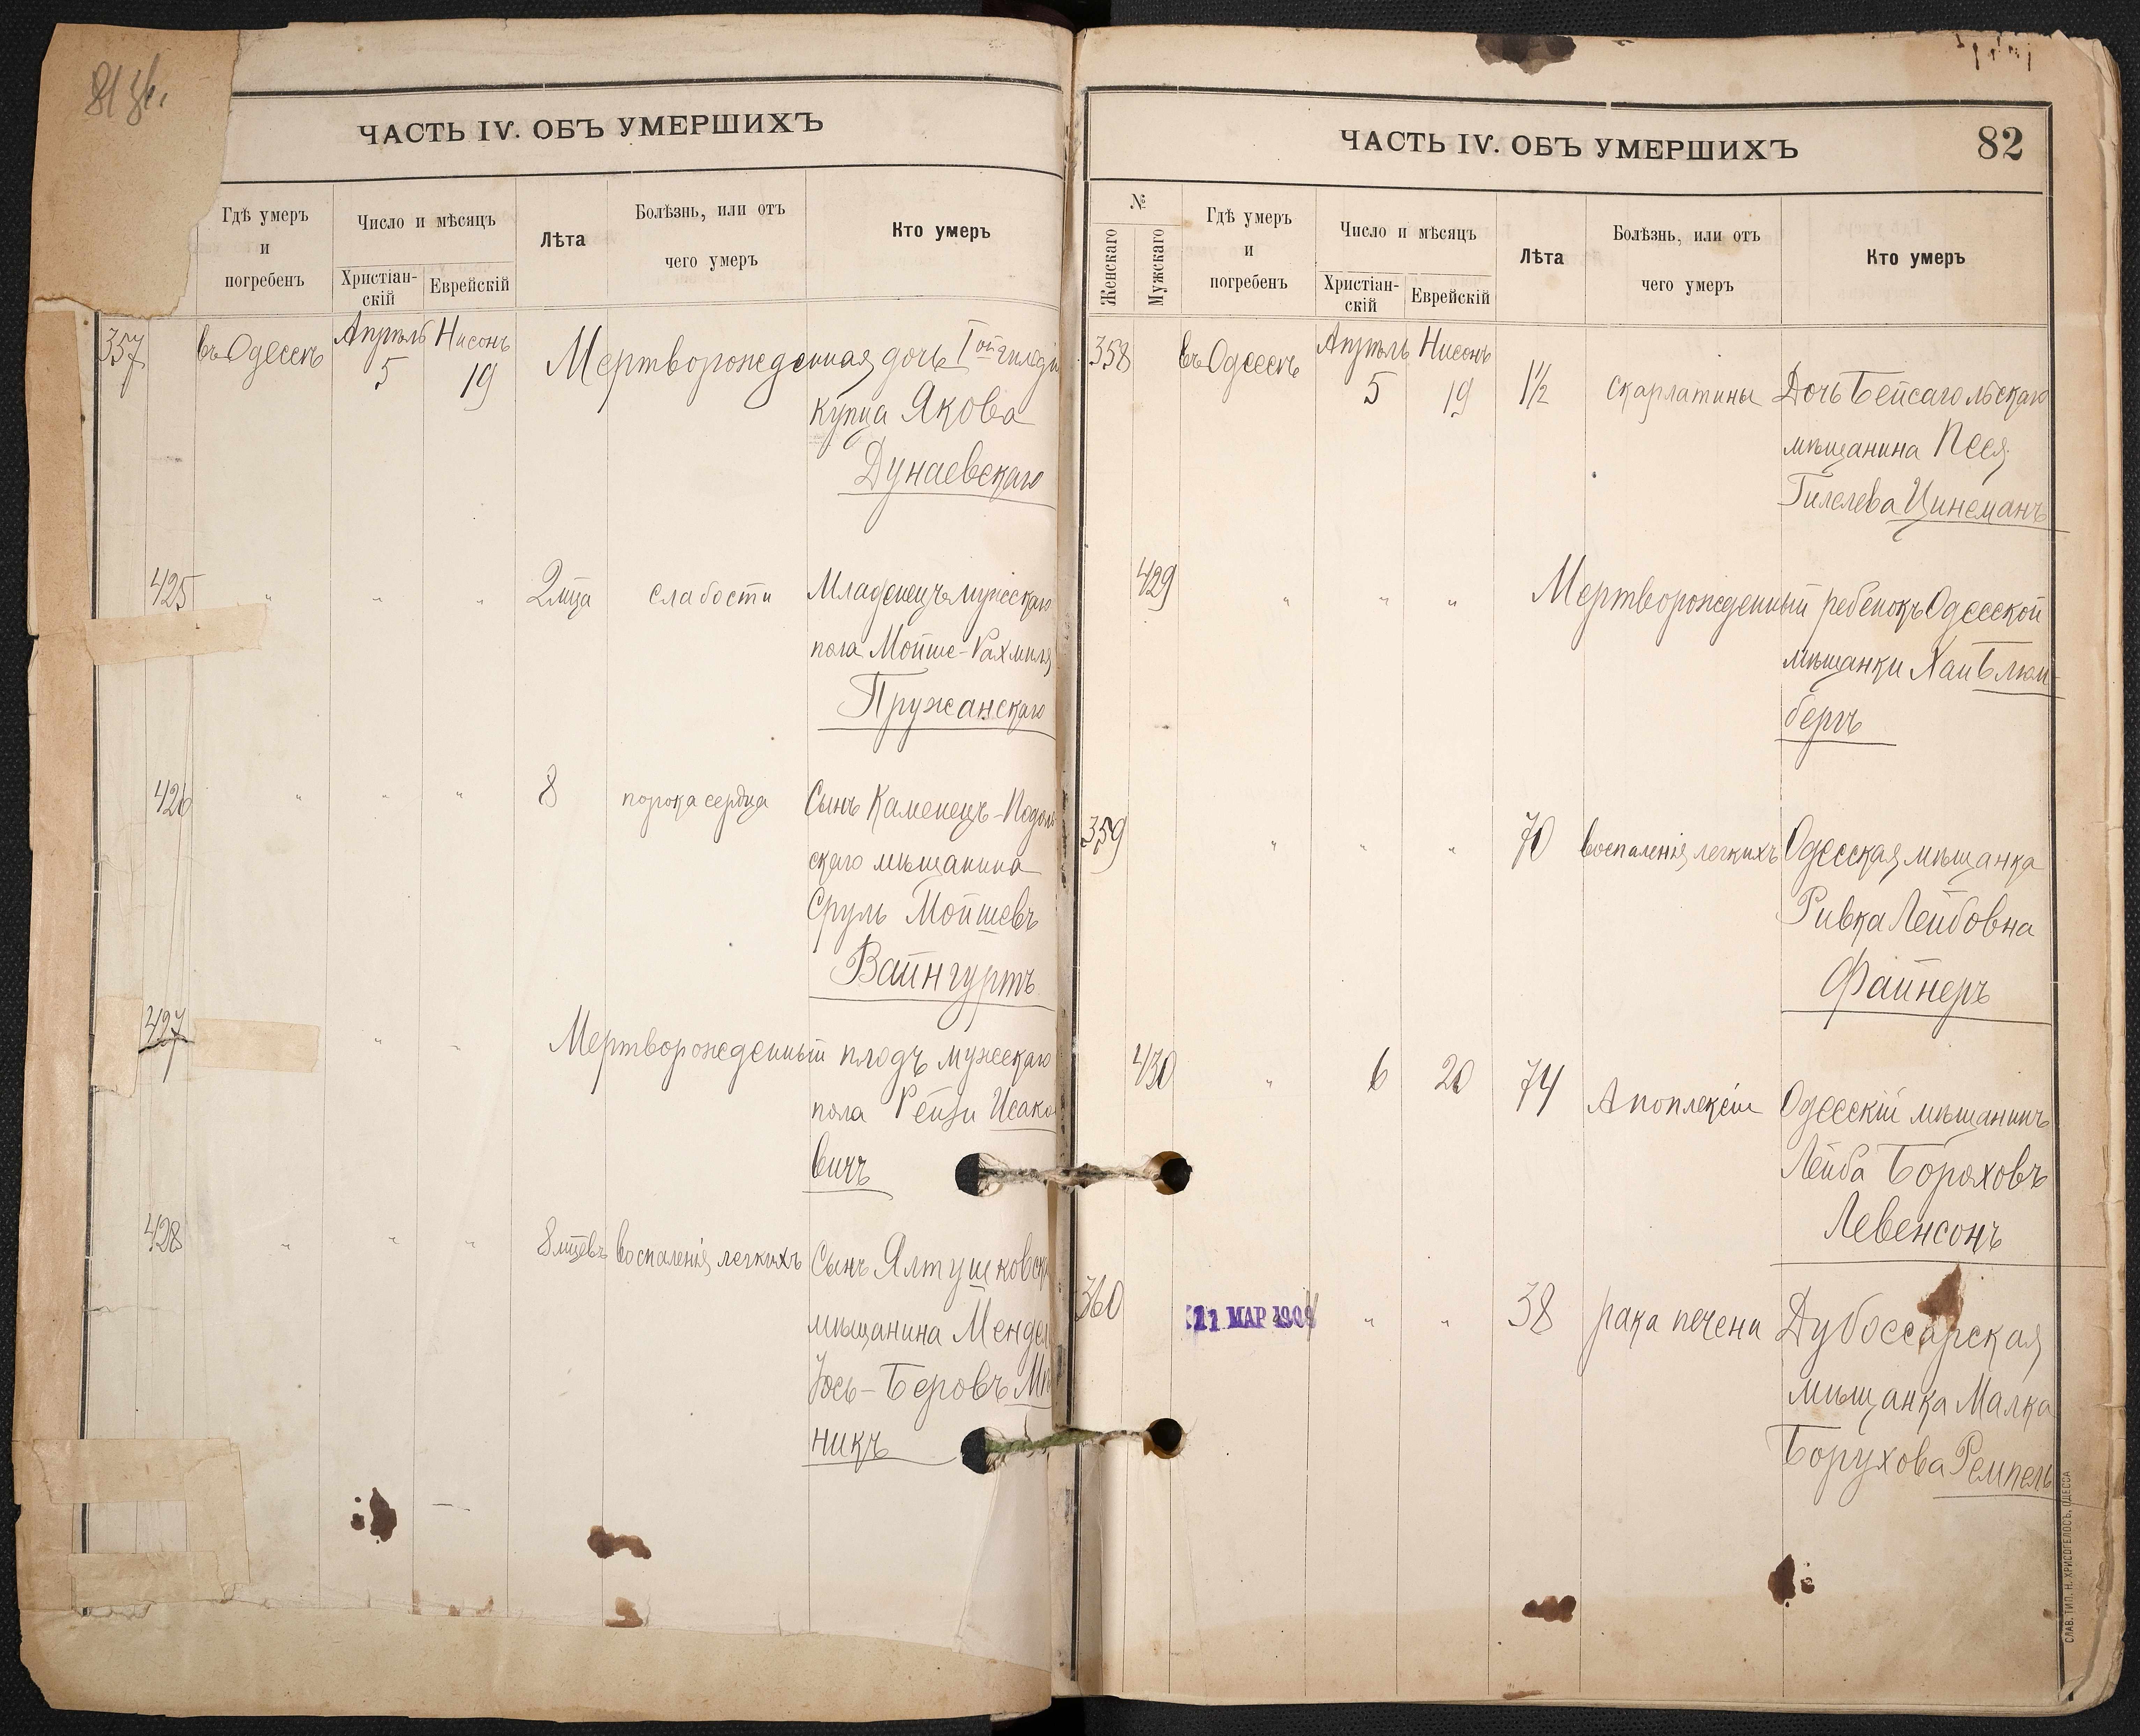 ЧАСТЬ IV. ОБЪ УМЕРШИХЪ
Гдѣ умеръ
и
погребенъ
Число и мѣсяцъ
Христіан-
скій
Еврейскій
Лѣта
Болѣзнь, или отъ
чего умеръ
Кто умеръ
357 въ Одессѣ Апрѣль 5 Нисонъ 19 Мертворожденная дочь I ой гильдіи
купца Якова
Дунаевскаго
425 " " " 2 мца слабости Младенецъ мужескаго
пола Мойше-Рахмиль
Пружанскаго
426 " " " 8 порока сердца Сынъ Каменецъ-Подоль
скаго мѣщанина
Сруль Мойшевъ
Вайнгуртъ
427 " " Мертворожденный плодъ мужескаго
пола Рейзи Исако
вичъ
428 " " " 8 мцевъ воспаленія легкихъ Сынъ Ялтушковск
мѣщанина Мендель
Іось-Беровъ
никъ
ЧАСТЬ IV. ОБЪ УМЕРШИХЪ
82
№
Женскаго
Мужскаго
Гдѣ умеръ
и
погребенъ
Число и мѣсяцъ
Христіан-
скій
Еврейскій
Лѣта
Болѣзнь, или отъ
чего умеръ
Кто умеръ
358 въ Одессѣ Апрѣль 5 Нисонъ 19 1½ скарлатины Дочь Бейсагольскаго
мѣщанина Песя
Гилелева Цинеманъ
429 " " " Мертворожденный ребенокъ Одесской
мѣщанки Хаи Блюм-
бергъ
359 " " " 70 воспаленія легкихъ Одесская мѣщанка
Ривка Лейбовна
Файнеръ
430 " 6 20 74 Апоплексіи Одесскій мѣщанинъ
Лейба Бороховъ
Левенсонъ
360 11 МАР 190 " " 38 рака печени Дубоссарская
мѣщанка Малка
Борухова Ремпель
СЛАВ. ТИП. Н. ХРИСОГЕЛОСЪ, ОДЕССА